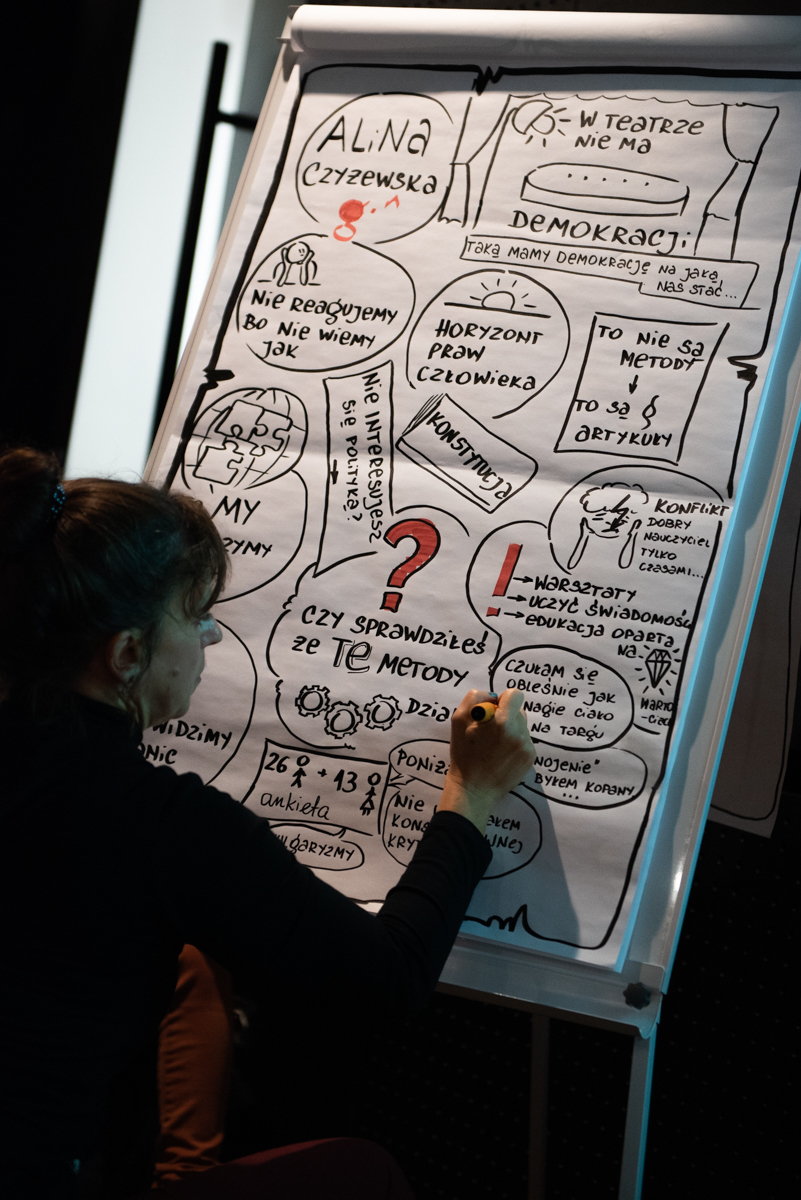 ALiNa
CZYŻEWSKA
W TEATRZE
Nie MA
DEMOKRACJi
TAKĄ MAMY DEMOKRACJĘ NA JAKĄ
NAS STAĆ...
Nie REAGUJEMY
BO NIE WIEMY
JAK
HORYZONT
PRAW
CZŁOWIEKA
TO NIE SĄ
METODY
TO SĄ §
ARTYKUŁY
Nie INTERESUJESZ
SIĘ POLITYKĄ?
KONSTYTUCJA
MY
KONFLIKT
DOBRY
NAUCZYCIEL
TYLKO
CZASAMI...
?
CZY SPRAWDZIŁEŚ
ŻE TE METODY
!
→ WARSZTATY
→ UCZYĆ ŚWIADOMOŚĆ
→ EDUKACJA OPARTA
NA
WARTO-
-ŚCIACH
CZUŁAM SIĘ
OBLEŚNIE JAK
NAGIE CIAŁO
NA TARGU
WIDZIMY
NIC
26 + 13
ankieta
BYŁEM KOPANY
...
Nie